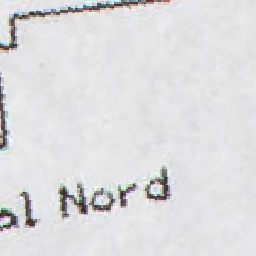 al Nord